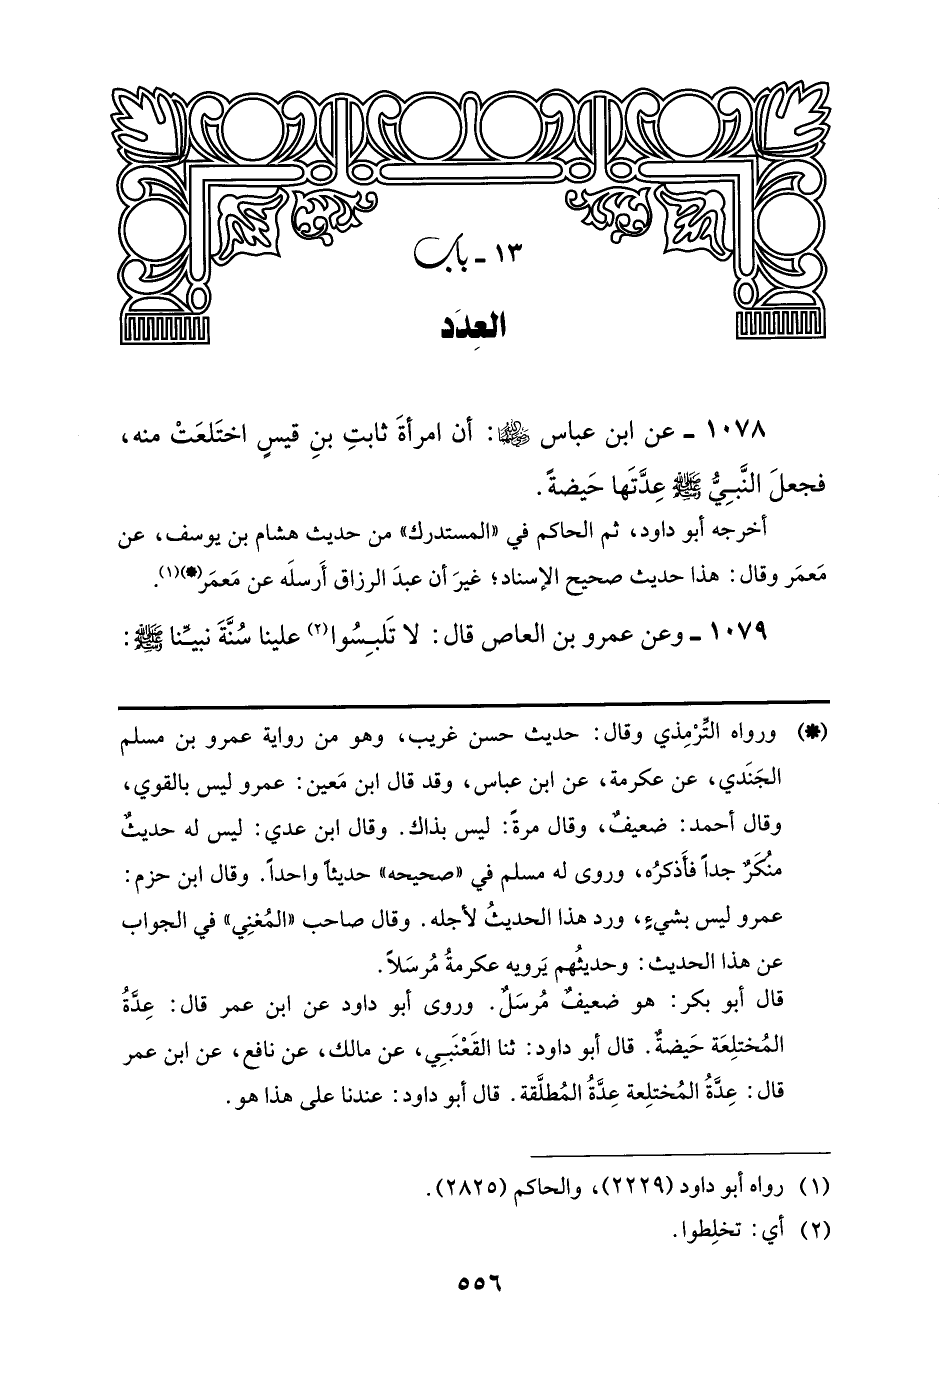 ١٣ - باب
العِدَد
١٠٧٨ - عن ابن عباس رضي الله عنهما: أن امرأةَ ثابتِ بنِ قيسٍ اختَلعَتْ منه،
فجعلَ النَّبيُّ ﷺ عِدَّتَها حَيضةً.
أخرجه أبو داود، ثم الحاكم في «المستدرك» من حديث هشام بن يوسف، عن
مَعمَر وقال: هذا حديث صحيح الإسناد؛ غيرَ أن عبدَ الرزاق أَرسلَه عن مَعمَر(*)(١).
١٠٧٩ - وعن عمرو بن العاص قال: لا تَلبِسُوا(٢) علينا سُنَّةَ نبيِّنا ﷺ:
(*) ورواه التِّرْمِذي وقال: حديث حسن غريب، وهو من رواية عمرو بن مسلم
الجَنَدي، عن عكرمة، عن ابن عباس، وقد قال ابن مَعين: عمرو ليس بالقوي،
وقال أحمد: ضعيفٌ، وقال مرةً: ليس بذاك. وقال ابن عدي: ليس له حديثٌ
مُنكَرٌ جداً فأَذكرُه، وروى له مسلم في «صحيحه» حديثاً واحداً. وقال ابن حزم:
عمرو ليس بشيءٍ، ورد هذا الحديثُ لأجله. وقال صاحب «المُغنِي» في الجواب
عن هذا الحديث: وحديثُهم يَرويه عكرمةُ مُرسَلاً.
قال أبو بكر: هو ضعيفٌ مُرسَلٌ. وروى أبو داود عن ابن عمر قال: عِدَّةُ
المُختلِعَة حَيضةٌ. قال أبو داود: ثنا القَعْنَبي، عن مالك، عن نافع، عن ابن عمر
قال: عِدَّةُ المُختلِعة عِدَّةُ المُطلَّقة. قال أبو داود: عندنا على هذا هو.
(١) رواه أبو داود (٢٢٢٩)، والحاكم (٢٨٢٥).
(٢) أي: تخلِطوا.
٥٥٦